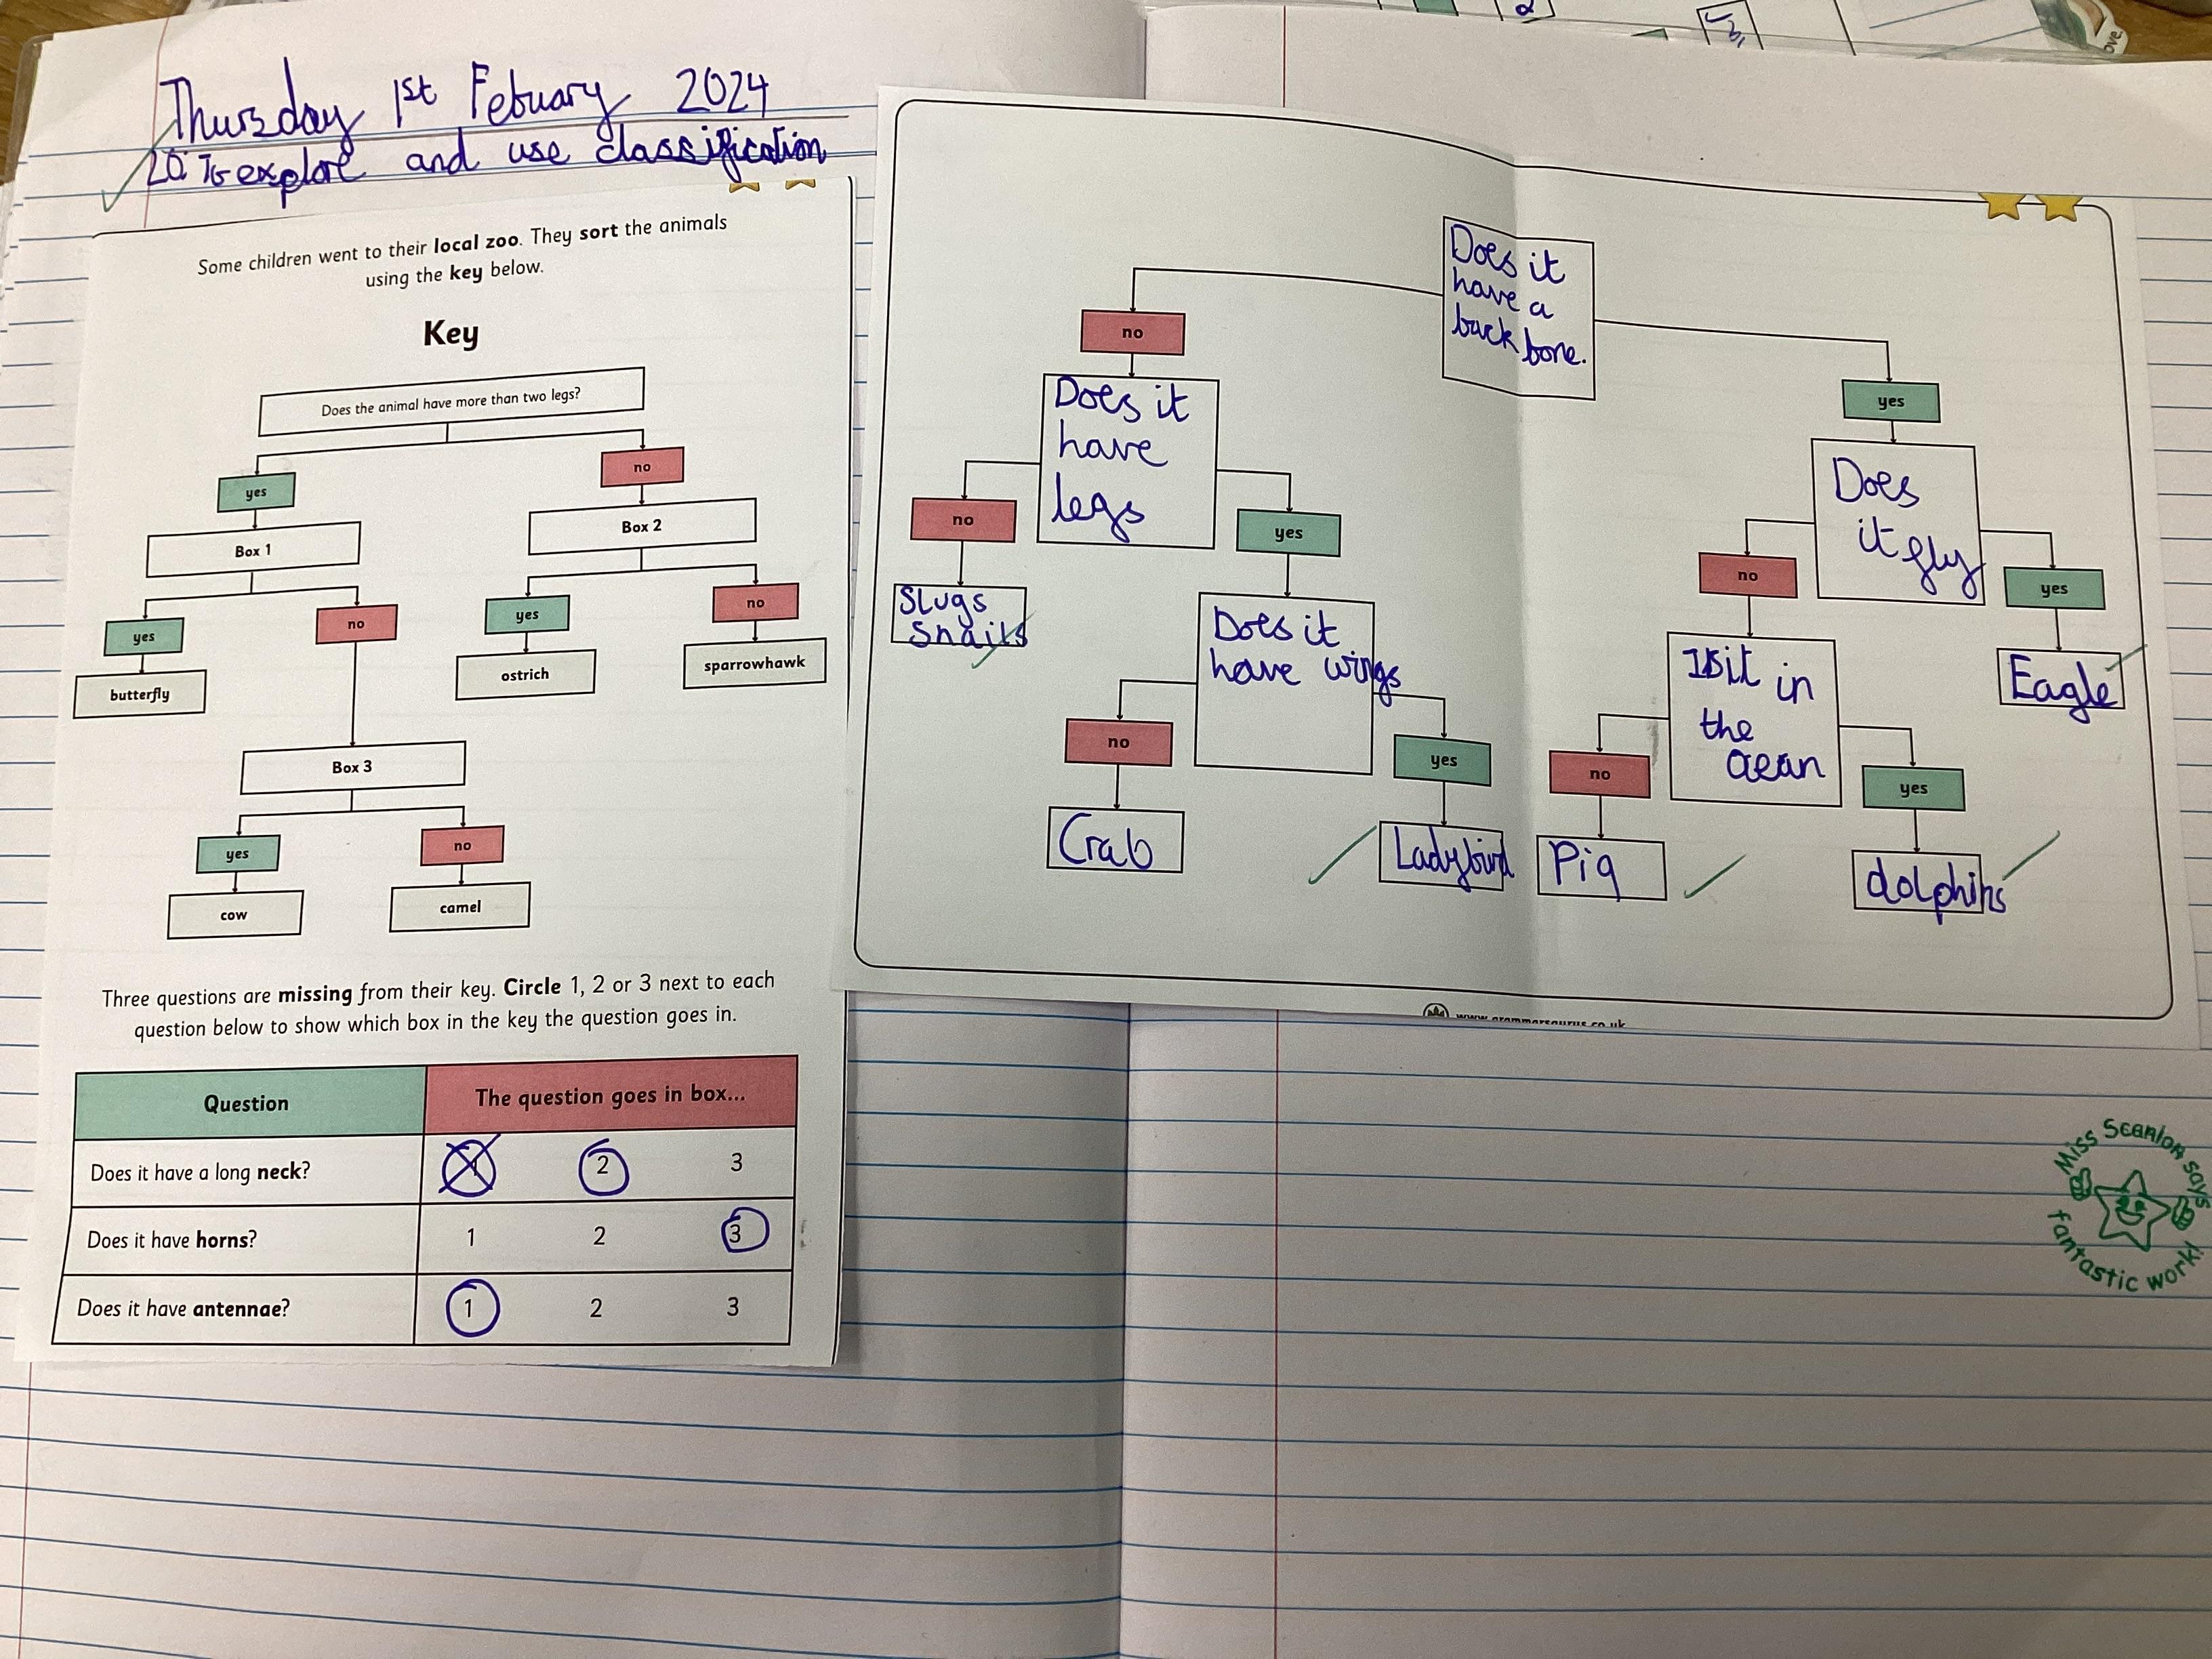 Thursday 1st Febuary 2024
LO: To explore and use classification
Some children went to their local zoo. They sort the animals
using the key below.
Key
Does the animal have more than two legs?
yes
no
Box 1
Box 2
yes
no
yes
no
butterfly
ostrich
sparrowhawk
Box 3
yes
no
cow
camel
Three questions are missing from their key. Circle 1, 2 or 3 next to each
question below to show which box in the key the question goes in.
Question
The question goes in box...
Does it have a long neck?
2
3
Does it have horns?
1
2
3
Does it have antennae?
1
2
3
Does it
have a
back bone.
no
yes
Does it
have
legs
Does
it fly
no
yes
no
yes
Slugs
Snails
Does it
have wings
Is it in
the
ocean
Eagle
no
yes
no
yes
Crab
Ladybird
Pig
dolphins
www.grammarsaurus.co.uk
Miss Scanlon says
fantastic work!